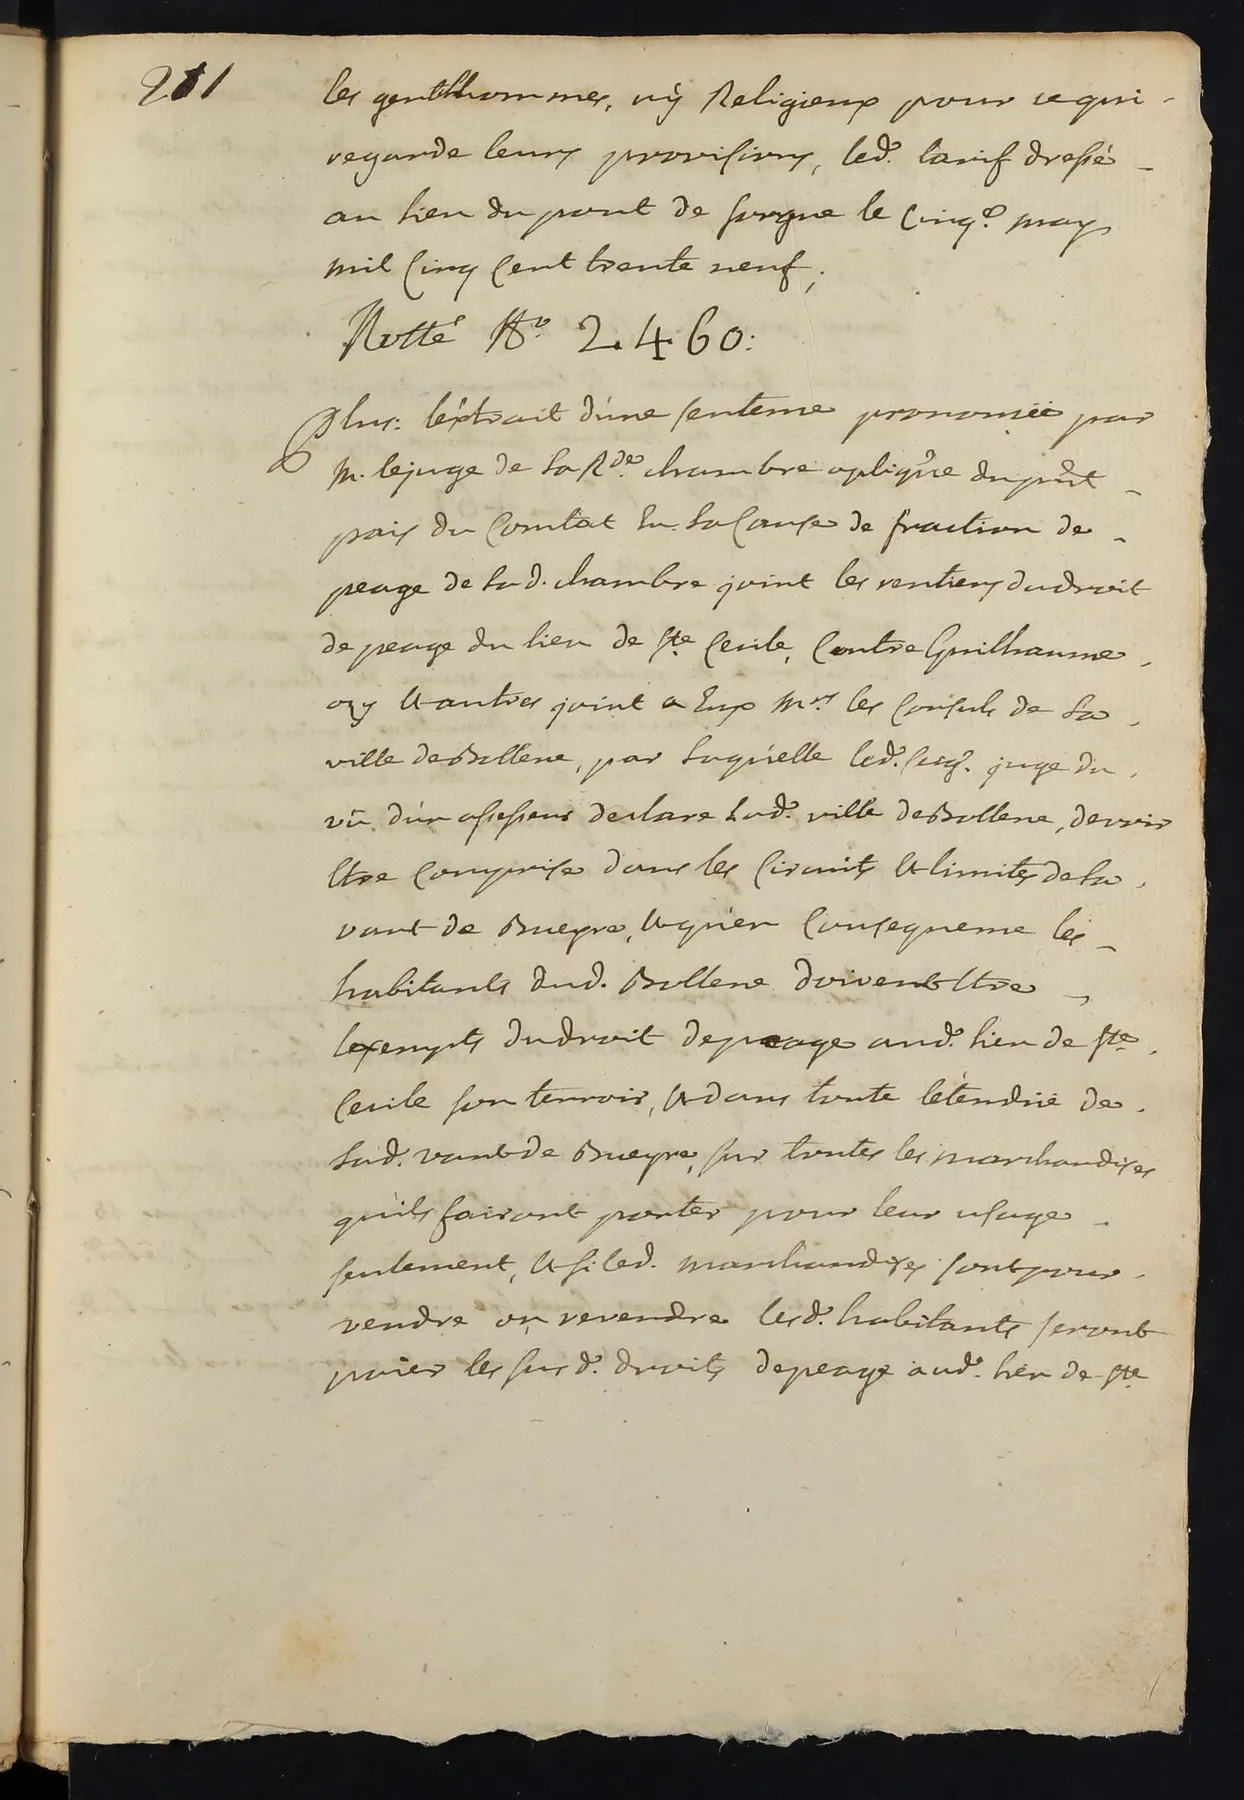 211
les gentilhommes, nÿ Religieux pour ce qui
regarde leurs provisions, led. tarif dressé
au lieu du pont de sorgue le Cinq.e may
mil Cinq Cent trente neuf;
Notté N.o 2460:
Plus: l'éxtrait d'une sentence prononcéé par
M. le juge de la R.de chambre apliq.ue du pnt
pais du Comtat En la Cause de fraction de
peage de lad. chambre joint les rentiers du droit
de peage du lieu de s.te Cecile, Contre Guilhaume
ozy et autres joint a Eux M.rs les Consuls de la
ville de Bollene, par laquelle led. seig.r juge du
vû d'un assesseur declare lad. ville de Bollene, devoir
Etre Comprise dans les Circuits et limites de la
vant de Bueyre, et qu'en Consequence les
habitants dud. Bollene doivent Etre
Exempts du droit de peage aud. lieu de s.te
Cecile son terroir, et dans toute l'étendüe de
lad. vant de Bueyre, sur toutes les marchandises
qu'ils fairont porter pour leur usage
seulement, et si led. marchandises sont pour
vendre ou revendre lesd. habitants seront
païer les susd. droits de peage aud. lieu de s.te